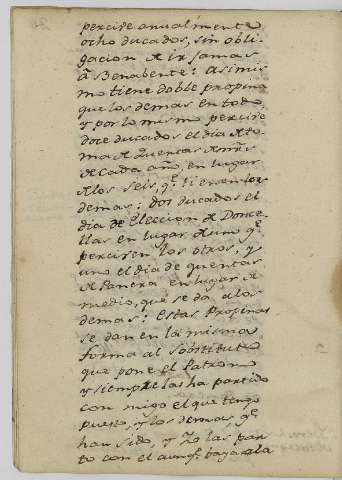 percive anualmente
ocho ducados, sin obli-
gacion de ir jamas
a Benabente: asimis
mo tiene doble propina
que los demas en todo,
y por lo mismo percive
doce ducados el dia de to-
ma de quentas
de cada año, en lugar
de los seis, q.e tienen los
demas: dos ducados el
dia de Eleccion de Donce-
llas en lugar de uno q.e
perciven los otros, y
uno el dia de quentas
de Panera en lugar de
medio, que se da a los
demas: Estas Propinas
se dan en la misma
forma al Sobstituto
que pone el Patrono
y siempre las ha partido
con migo el que tengo
puesto, y los demas, q.e
han sido, y Yo las par-
to con el aunq.e baya a la